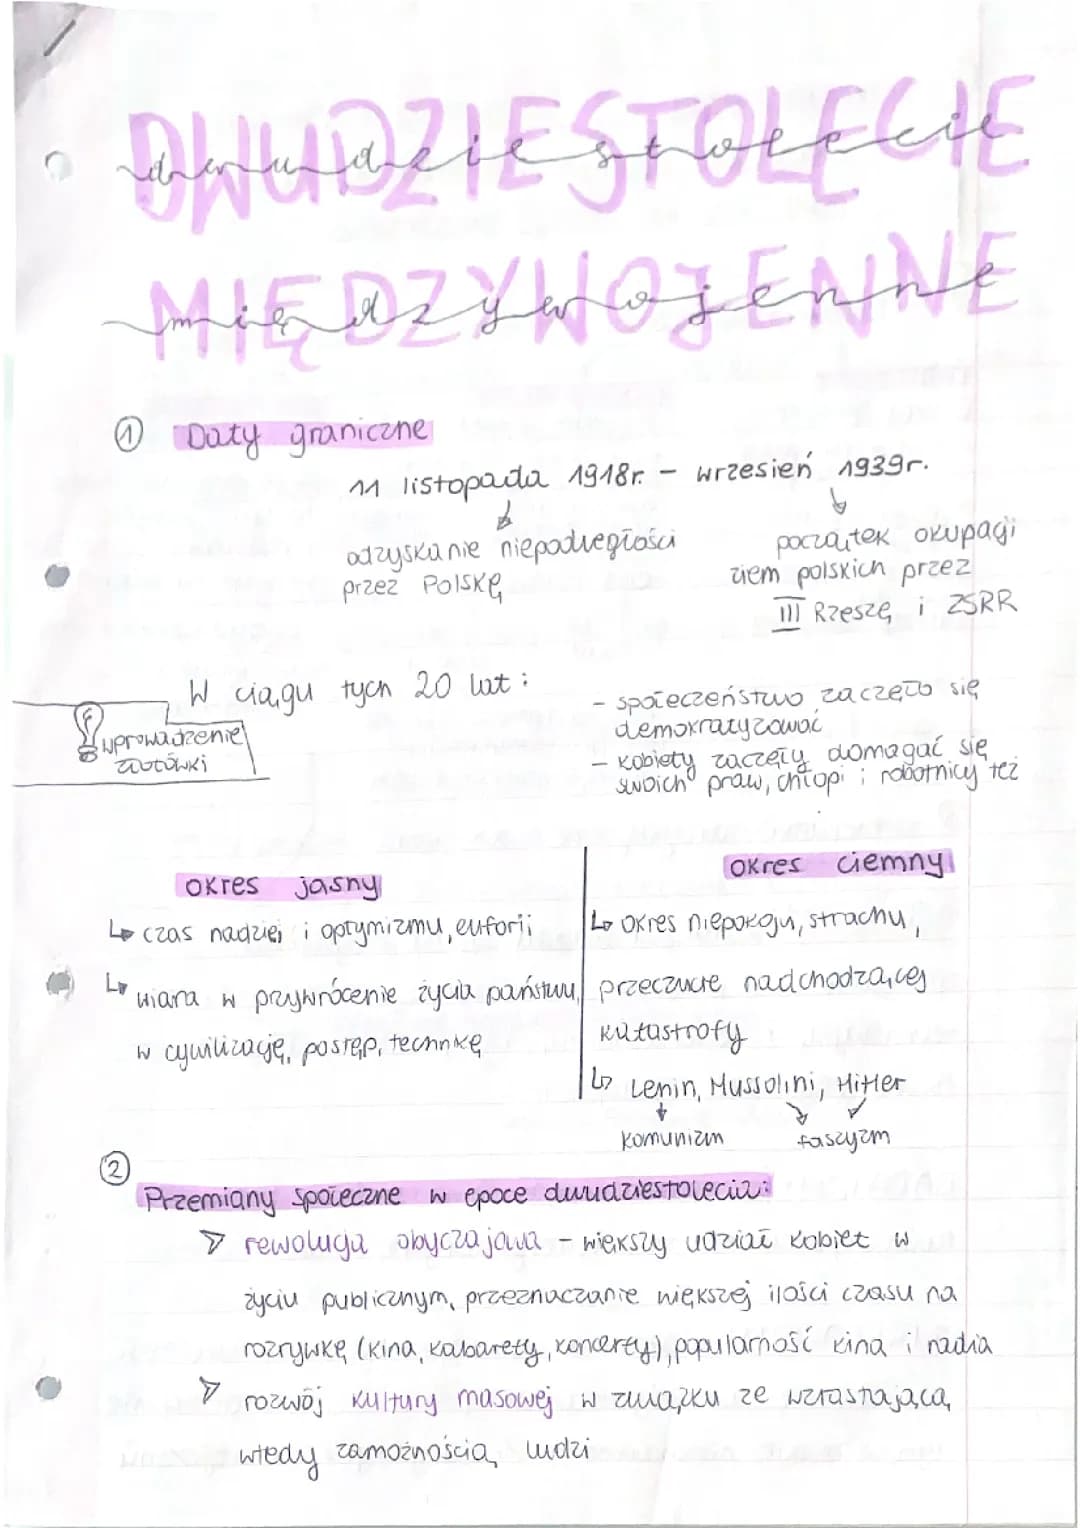 DWUDZIESTOLECIE
dwudziestolecie
MIĘDZYWOJENNE
międzywojenne
① Daty graniczne
11 listopada 1918r. – wrzesień 1939r.
odzyskanie niepodległości
przez Polskę
początek okupacji
ziem polskich przez
III Rzeszę i ZSRR
W ciągu tych 20 lat:
wprowadzenie
złotówki
- społeczeństwo zaczęło się
demokratyzować
- kobiety zaczęły domagać się
swoich praw, chłopi i robotnicy też
okres jasny
↳ czas nadziei i optymizmu, euforii
↳ wiara w przywrócenie życia państwu,
w cywilizację, postęp, technikę
okres ciemny
↳ okres niepokoju, strachu,
przeczucie nadchodzącej
katastrofy
↳ Lenin, Mussolini, Hitler
komunizm faszyzm
②
Przemiany społeczne w epoce dwudziestolecia:
▷ rewolucja obyczajowa – większy udział kobiet w
życiu publicznym, przeznaczanie większej ilości czasu na
rozrywkę (kina, kabarety, koncerty), popularność kina i radia
▷ rozwój kultury masowej w związku ze wzrastającą
wtedy zamożnością ludzi